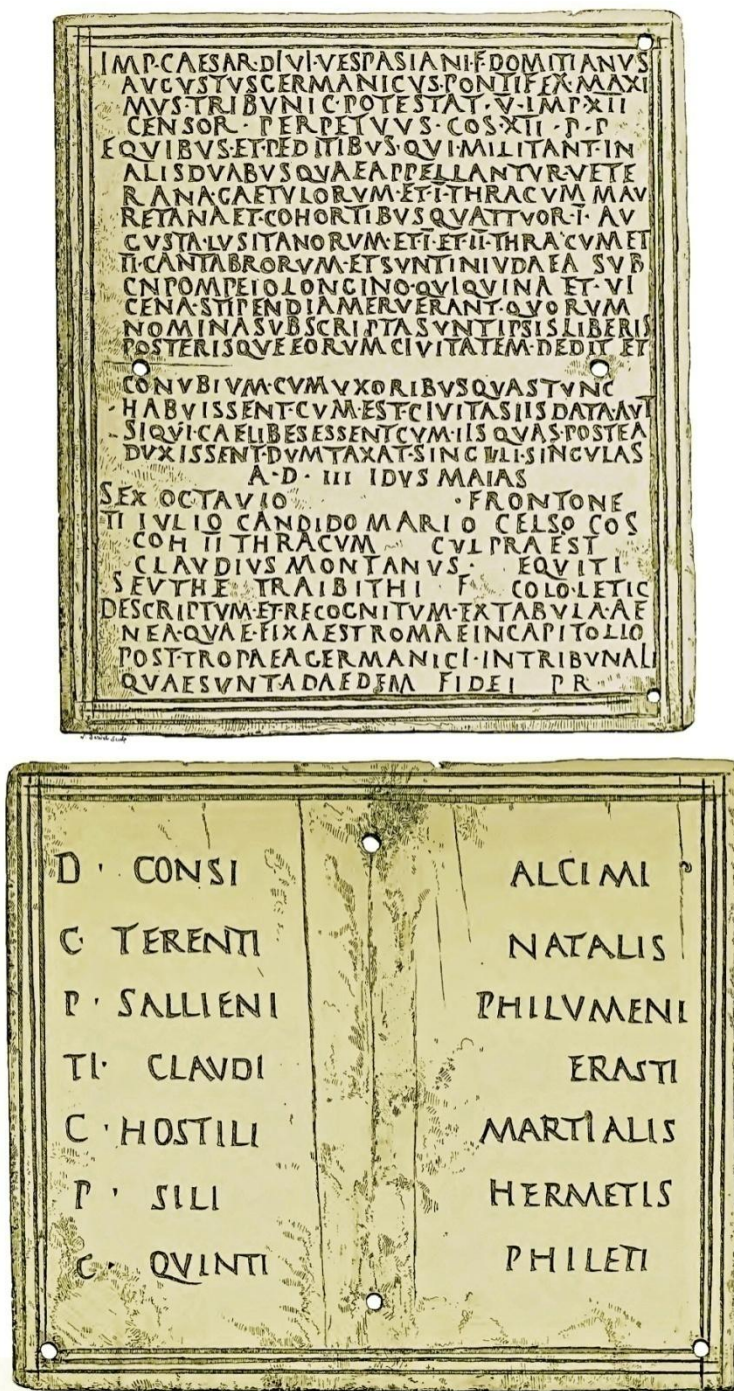 IMP·CAESAR·DIVI·VESPASIANI·F·DOMITIANVS
AVGVSTVSGERMANICVS·PONTIFEX·MAXI
MVS·TRIBVNIC·POTESTAT·V·IMP·XII
CENSOR·PERPETVVS·COS·XII·P·P
EQVIBVS·ET·PEDITIBVS·QVI·MILITANT·IN
ALISDVABVSQVAEAPPELLANTVR·VETE
RANA·GAETVLORVM·ET·I·THRACVM MAV
RETANAET·COHORTIBVSQVATTVOR·I·AV
GVSTA·LVSITANORVM·ET·I·ET·II·THRACVMET
II·CANTABRORVM·ETSVNTINIVDAEA SVB
CNPOMPEIOLONGINO·QVIQVINA ET·VI
CENA·STIPENDIAMERVERANT·QVORVM
NOMINASVBSCRIPTASVNTIPSISLIBERIS
POSTERISQVEEORVMCIVITATEM·DEDIT·ET
CONVBIVM·CVMVXORIBVSQVASTVNC
HABVISSENT·CVM·EST·CIVITASIISDATA·AVT
SIQVI·CAELIBESESSENTCVM·IISQVAS·POSTEA
DVXISSENT·DVMTAXAT·SINGVLI·SINGVLAS
A·D·III IDVS MAIAS
SEX OCTAVIO ·FRONTONE
TI IVLIO CANDIDO MARIO CELSO COS
COH II THRACVM CVI PRAEST
CLAVDIVS MONTANVS· EQVITI
SEVTHE TRAIBITHI F COLOLETIC
DESCRIPTVM·ET·RECOGNITVM·EXTABVLA·AE
NEA·QVAE·FIXAESTROMAEINCAPITOLIO
POST·TROPAEAGERMANICI·INTRIBVNALI
QVAESVNT·ADAEDEM FIDEI PR
D· CONSI ALCIMI
C· TERENTI NATALIS
P· SALLIENI PHILVMENI
TI· CLAVDI ERASTI
C·HOSTILI MARTIALIS
P· SILI HERMETIS
C· QVINTI PHILETI